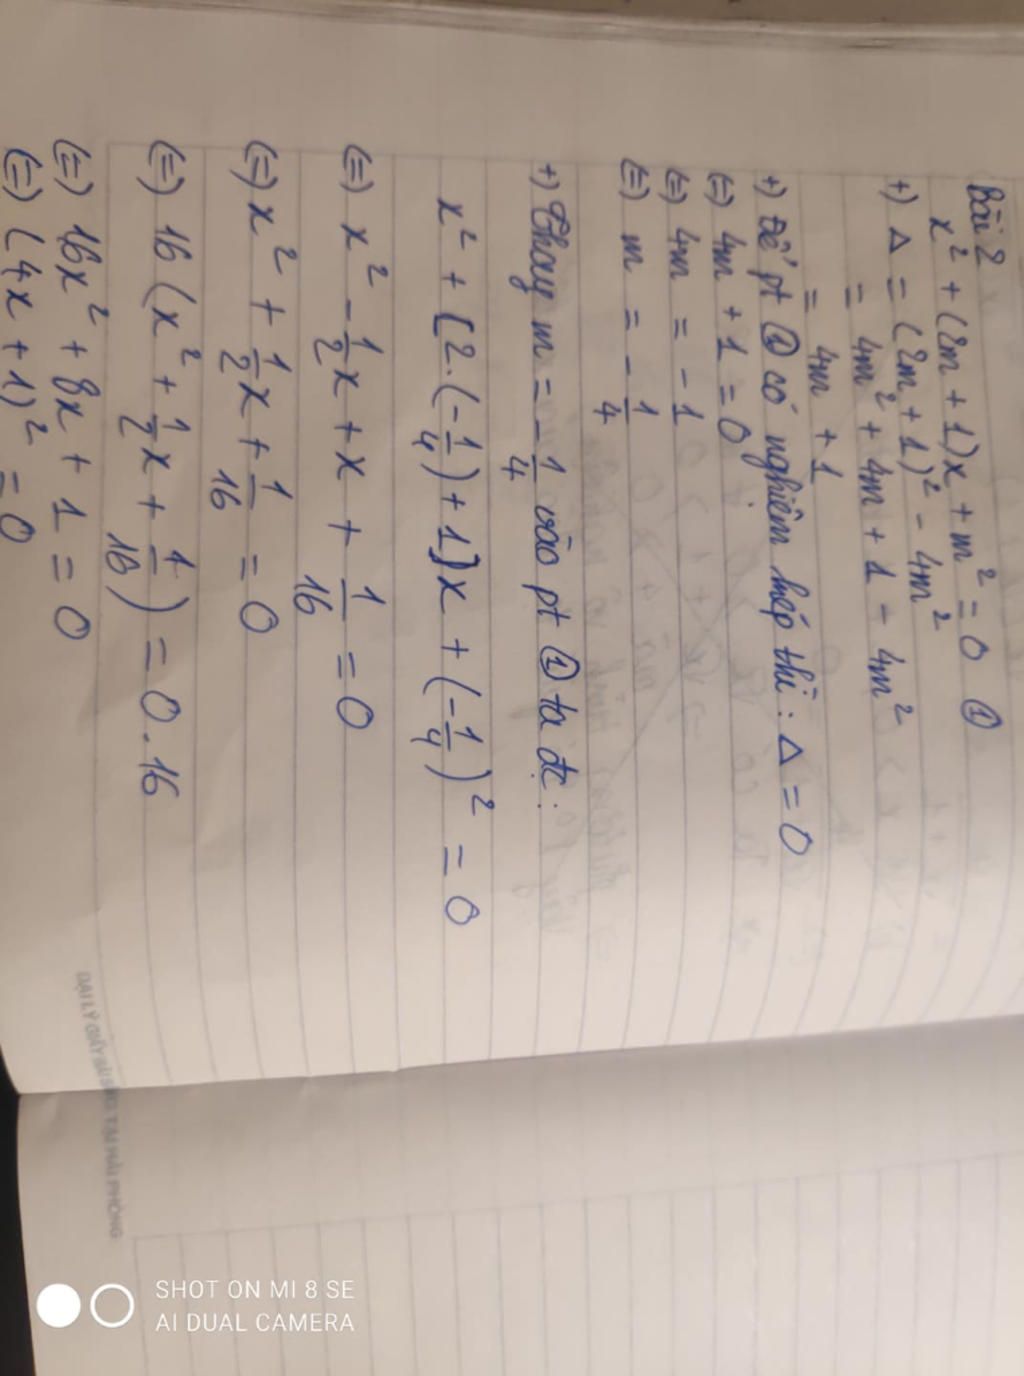 Bài 2
x² + (2m + 1)x + m² = 0 ①
+) Δ = (2m + 1)² - 4m²
= 4m² + 4m + 1 - 4m²
= 4m + 1
+) Để pt ① có nghiệm kép thì : Δ = 0
(=) 4m + 1 = 0
(=) 4m = -1
(=) m = -1/4
+) Thay m = -1/4 vào pt ① ta đc :
x² + [2.(-1/4) + 1]x + (-1/4)² = 0
(=) x² - 1/2x + x + 1/16 = 0
(=) x² + 1/2x + 1/16 = 0
(=) 16(x² + 1/2x + 1/16) = 0.16
(=) 16x² + 8x + 1 = 0
(=) (4x + 1)² = 0
ĐẠI LÝ GIẤY TẠI HẢI PHÒNG
SHOT ON MI 8 SE
AI DUAL CAMERA